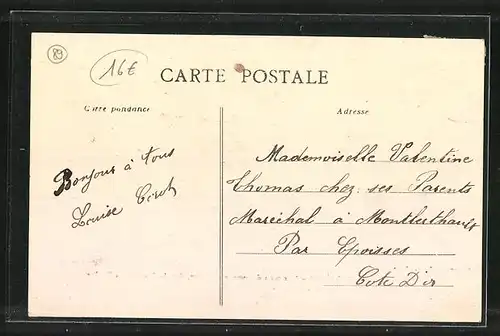 89
16€
CARTE POSTALE
Correspondance
Adresse
Bonjour à tous
Louise
Mademoiselle Valentine
Thomas chez ses Parents
Marechal à Montberthault
Par Epoisses
Cote D'or